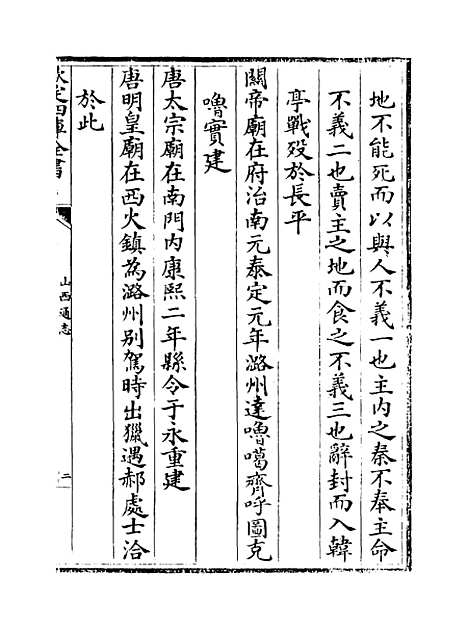 地不能死而以與人不義一也主内之秦不奉主命
不義二也賣主之地而食之不義三也辭封而入韓
亭戰殁於長平
關帝廟在府治南元泰定元年潞州達嚕噶齊呼圖克
嚕實建
唐太宗廟在南門内康熙二年縣令于永重建
唐明皇廟在西火鎮為潞州别駕時出獵遇郝處士洽
於此
欽定四庫全書
山西通志
二